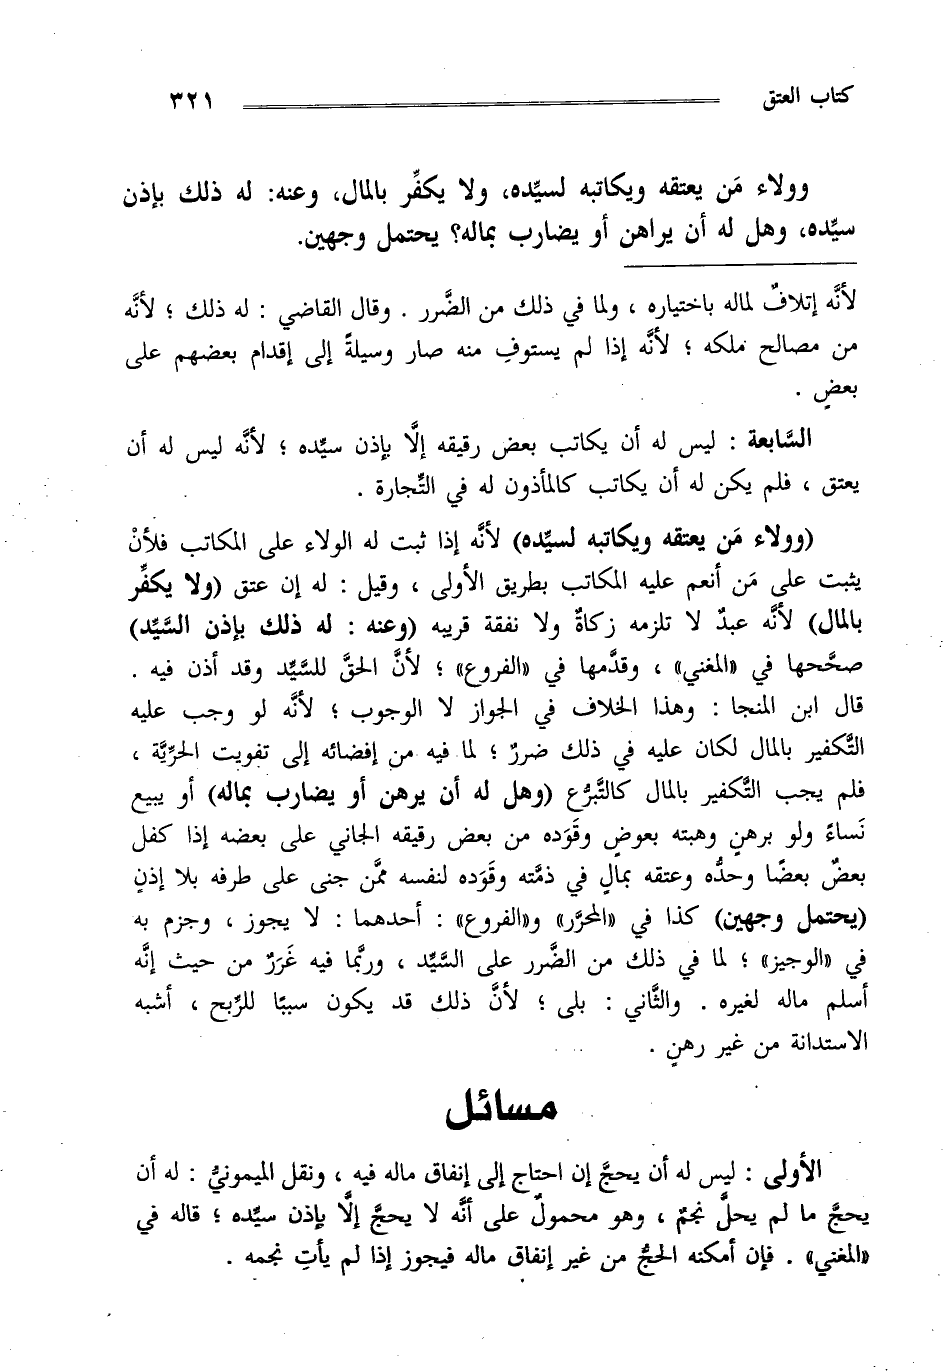 كتاب العتق ٣٢١
وولاء مَن يعتقه ويكاتبه لسيِّده، ولا يكفِّر بالمال، وعنه: له ذلك بإذن
سيِّده، وهل له أن يراهن أو يضارب بماله؟ يحتمل وجهين.
لأنَّه إتلافٌ لماله باختياره ، ولما في ذلك من الضَّرر . وقال القاضي : له ذلك ؛ لأنَّه
من مصالح ملكه ؛ لأنَّه إذا لم يستوفِ منه صار وسيلةً إلى إقدام بعضهم على
بعضٍ .
السَّابعة : ليس له أن يكاتب بعض رقيقه إلَّا بإذن سيِّده ؛ لأنَّه ليس له أن
يعتق ، فلم يكن له أن يكاتب كالمأذون له في التِّجارة .
(وولاء مَن يعتقه ويكاتبه لسيِّده) لأنَّه إذا ثبت له الولاء على المكاتب فلأنْ
يثبت على مَن أنعم عليه المكاتب بطريق الأولى ، وقيل : له إن عتق (ولا يكفِّر
بالمال) لأنَّه عبدٌ لا تلزمه زكاةٌ ولا نفقة قريبه (وعنه : له ذلك بإذن السَّيِّد)
صحَّحها في «المغني» ، وقدَّمها في «الفروع» ؛ لأنَّ الحقَّ للسَّيِّد وقد أذن فيه .
قال ابن المنجا : وهذا الخلاف في الجواز لا الوجوب ؛ لأنَّه لو وجب عليه
التَّكفير بالمال لكان عليه في ذلك ضررٌ ؛ لما فيه من إفضائه إلى تفويت الحرِّيَّة ،
فلم يجب التَّكفير بالمال كالتَّبرُّع (وهل له أن يرهن أو يضارب بماله) أو يبيع
نَساءً ولو برهنٍ وهبته بعوضٍ وقَوَده من بعض رقيقه الجاني على بعضه إذا كفل
بعضٌ بعضًا وحدُّه وعتقه بمالٍ في ذمَّته وقَوَده لنفسه ممَّن جنى على طرفه بلا إذنٍ
(يحتمل وجهين) كذا في «المحرَّر» و«الفروع» : أحدهما : لا يجوز ، وجزم به
في «الوجيز» ؛ لما في ذلك من الضَّرر على السَّيِّد ، وربَّما فيه غَرَرٌ من حيث إنَّه
أسلم ماله لغيره . والثَّاني : بلى ؛ لأنَّ ذلك قد يكون سببًا للرِّبح ، أشبه
الاستدانة من غير رهنٍ .
مسائل
الأولى : ليس له أن يحجَّ إن احتاج إلى إنفاق ماله فيه ، ونقل الميمونيُّ : له أن
يحجَّ ما لم يحلَّ نجمٌ ، وهو محمولٌ على أنَّه لا يحجَّ إلَّا بإذن سيِّده ؛ قاله في
«المغني» . فإن أمكنه الحجُّ من غير إنفاق ماله فيجوز إذا لم يأتِ نجمه .